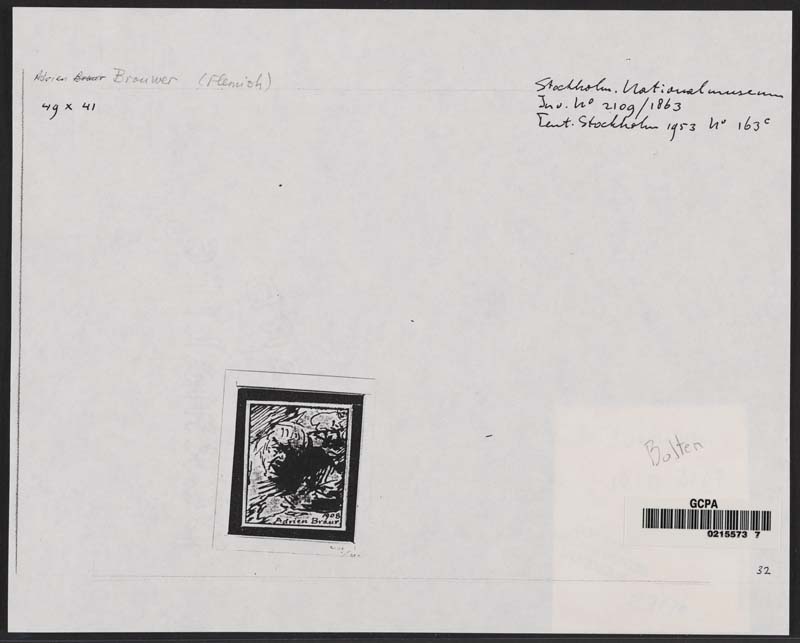 Adrien Braur Brouwer (Flemish)
49 x 41
Stockholm. Nationalmuseum
Inv. No 2109/1863
Tent. Stockholm 1953 No 163c
1908
Adrien Braur
Bolten
GCPA
0215573 7
32